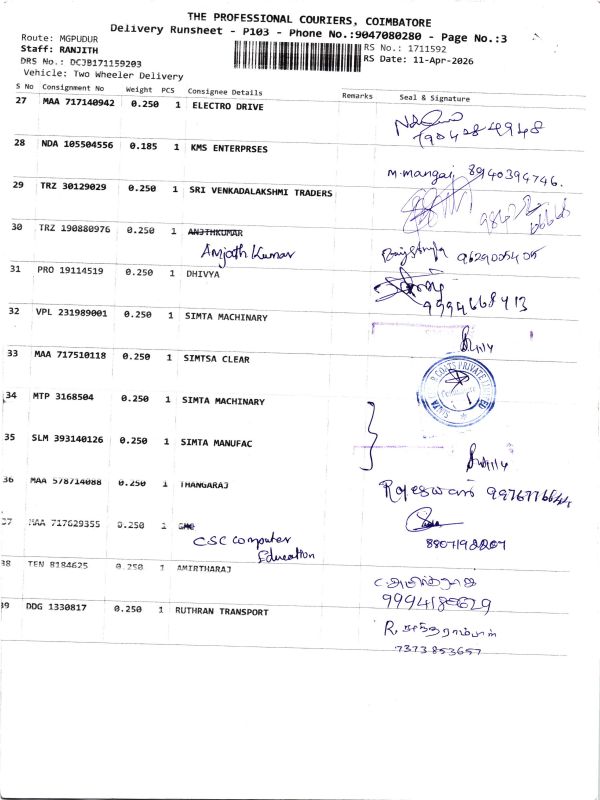 THE PROFESSIONAL COURIERS, COIMBATORE
Delivery Runsheet - P103 - Phone No.:9047080280 - Page No.:3
Route: MGPUDUR
RS No.: 1711592
Staff: RANJITH
RS Date: 11-Apr-2026
DRS No.: DCJB171159203
Vehicle: Two Wheeler Delivery
S No Consignment No Weight PCS Consignee Details Remarks Seal & Signature
27 MAA 717140942 0.250 1 ELECTRO DRIVE
28 NDA 105504556 0.185 1 KMS ENTERPRSES
M.mangai 8940394746.
29 TRZ 30129029 0.250 1 SRI VENKADALAKSHMI TRADERS
30 TRZ 190880976 0.250 1 ANJTHKUMAR
Amjoth Kumar 9629005405
31 PRO 19114519 0.250 1 DHIVYA
9994668413
32 VPL 231989001 0.250 1 SIMTA MACHINARY
33 MAA 717510118 0.250 1 SIMTSA CLEAR
34 MTP 3168504 0.250 1 SIMTA MACHINARY
35 SLM 393140126 0.250 1 SIMTA MANUFAC
36 MAA 578714088 0.250 1 THANGARAJ
Rajeswari
37 MAA 717629355 0.250 1
CSC Computer
Education
38 TEN 8184625 0.250 1 AMIRTHARAJ
39 DDG 1330817 0.250 1 RUTHRAN TRANSPORT
7373853657